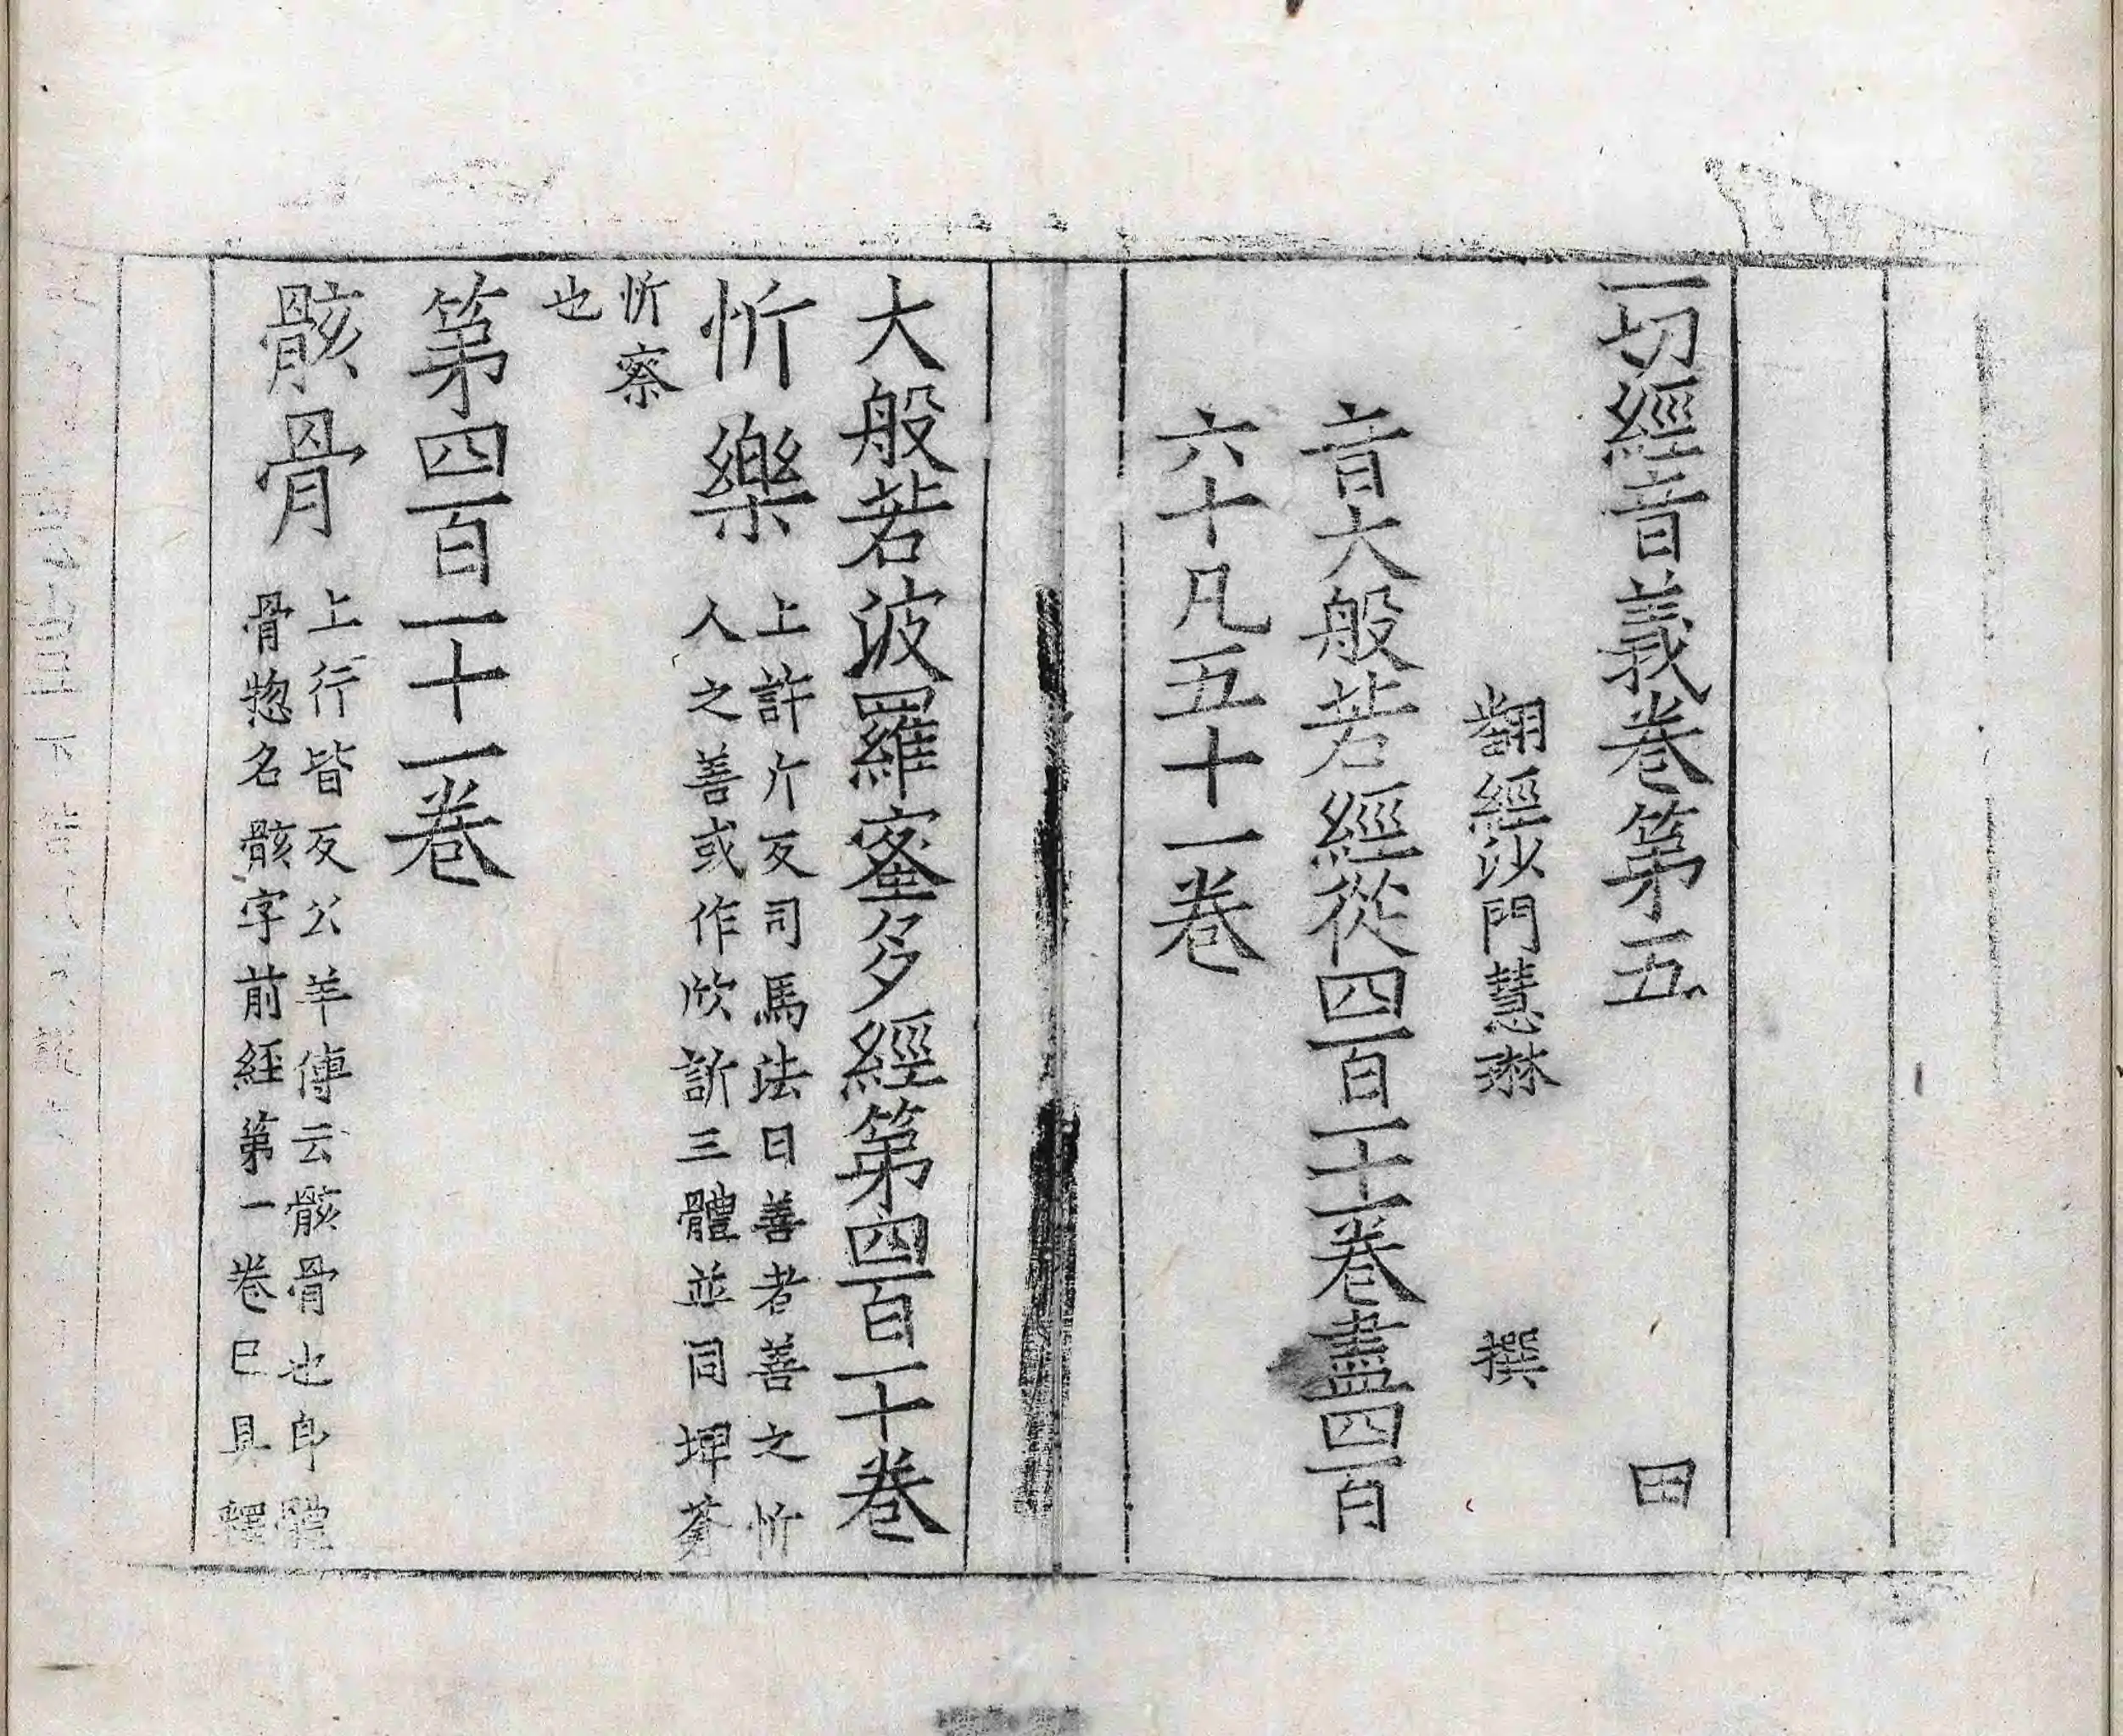 一切經音義卷第五　田
翻經沙門慧琳　撰
音大般若經從四百一十一卷盡四百
六十凡五十一卷
大般若波羅蜜多經第四百一十卷
忻樂
上許斤反司馬法曰善者善之忻
人之善或作欣訢三體並同埤蒼
忻察
也
第四百一十一卷
骸骨
上行皆反公羊傳云骸骨也即體
骨惣名骸字前經第一卷已具釋